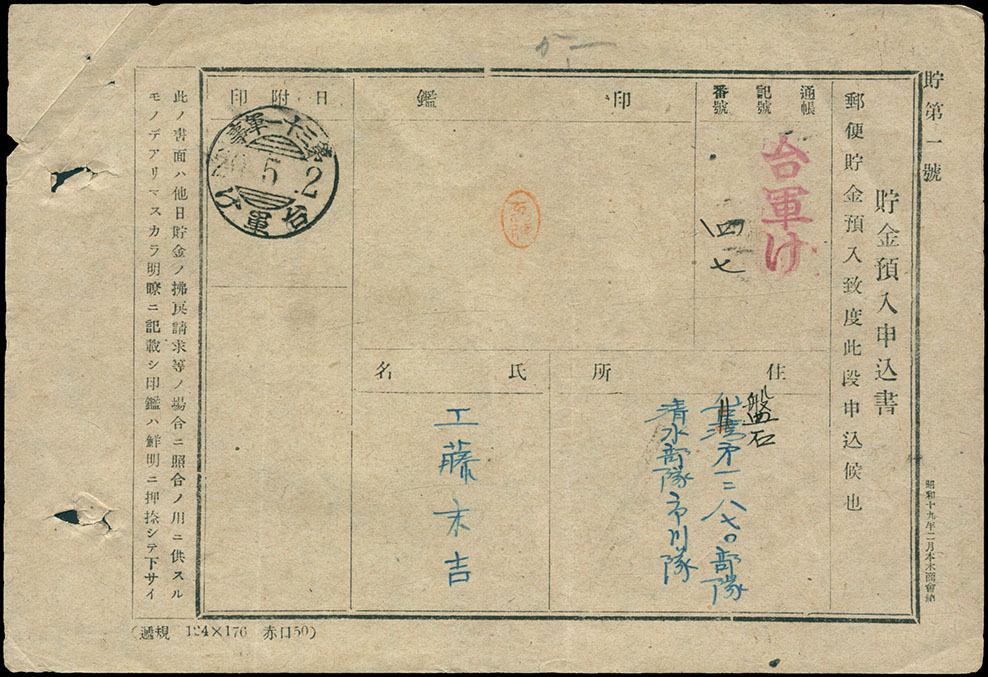 貯第一號
貯金預入申込書
郵便貯金預入致度此段申込候也
通帳
記號
番號
台軍け
四七
印鑑
日附印
第三十一軍事
20.5.2
台軍け
住所
盤石
第一二八七〇部隊
清水部隊市川隊
氏名
工藤末吉
此ノ書面ハ他日貯金ノ拂戻請求等ノ場合ニ照合ノ用ニ供スル
モノデアリマスカラ明瞭ニ記載シ印鑑ハ鮮明ニ押捺シテ下サイ
(遞規 124×176 赤口50)